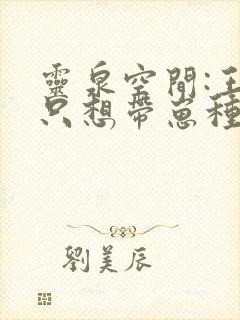 靈泉空間:王
只想帶崽種
劉美辰